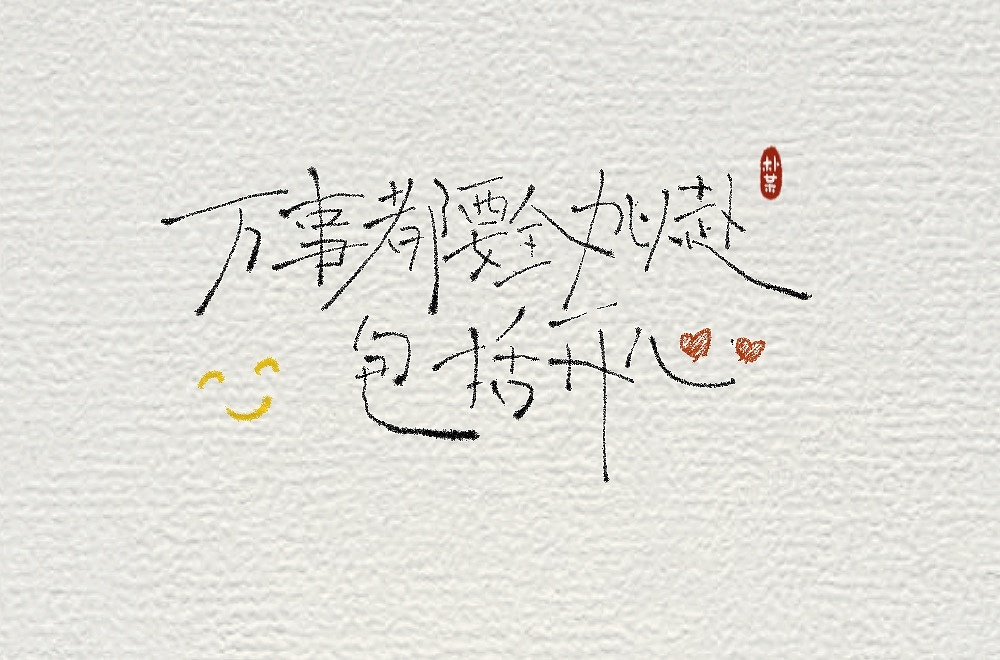 万事都要全力以赴
包括开心